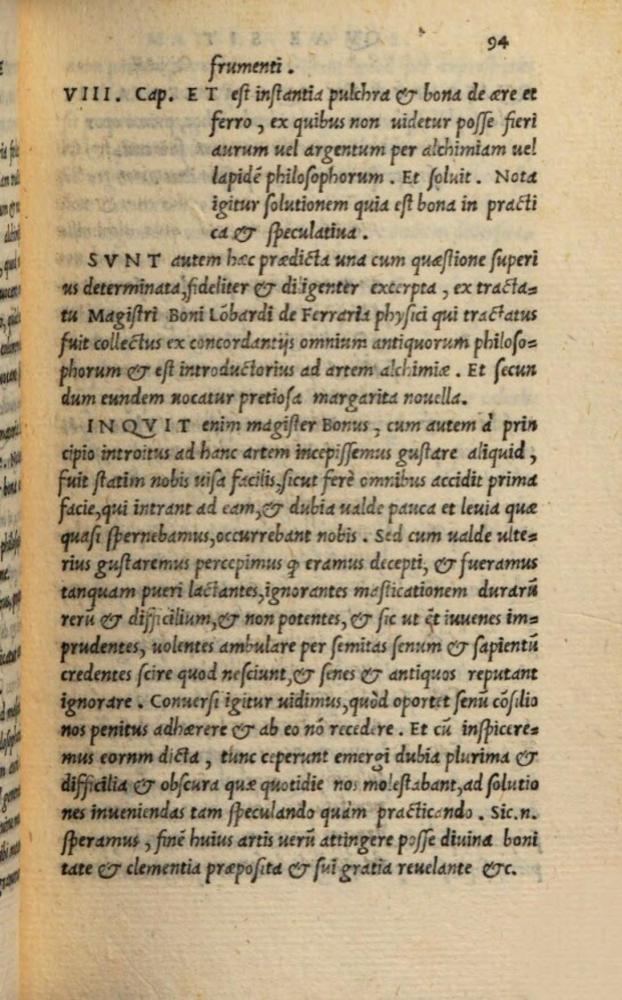 94
frumenti.
VIII. Cap. ET eſt inſtantia pulchra & bona de ære et
ferro, ex quibus non uidetur poſſe fieri
aurum uel argentum per alchimiam uel
lapidē philoſophorum. Et ſoluit. Nota
igitur ſolutionem quia eſt bona in practi
ca & ſpeculatiua.
SVNT autem hæc prædicta una cum quæſtione ſuperi
us determinata, fideliter & diligenter excerpta, ex tracta=
tu Magiſtri Boni Lōbardi de Ferraria phyſici qui tractatus
fuit collectus ex concordantijs omnium antiquorum philoſo=
phorum & eſt introductorius ad artem alchimiæ. Et ſecun
dum eundem uocatur pretioſa margarita nouella.
INQVIT enim magiſter Bonus, cum autem à prin
cipio introitus ad hanc artem incepiſſemus guſtare aliquid,
fuit ſtatim nobis uiſa facilis, ſicut ferè omnibus accidit prima
facie, qui intrant ad eam, & dubia ualde pauca et leuia quæ
quaſi ſpernebamus, occurrebant nobis. Sed cum ualde ulte=
rius guſtaremus percepimus ꝙ eramus decepti, & fueramus
tanquam pueri lactantes, ignorantes maſticationem durarū
rerū & difficilium, & non potentes, & ſic ut iuuenes im=
prudentes, uolentes ambulare per ſemitas ſenum & ſapientū
credentes ſcire quod neſciunt, & ſenes & antiquos reputant
ignorare. Conuerſi igitur uidimus, quòd oportet ſenū cōſilio
nos penitus adhærere & ab eo nō recedere. Et cū inſpicere=
mus eornm dicta, tunc ceperunt emergi dubia plurima &
difficilia & obſcura quæ quotidie nos moleſtabant, ad ſolutio
nes inueniendas tam ſpeculando quàm practicando. Sic.n.
ſperamus, finē huius artis uerū attingere poſſe diuina boni
tate & clementia præpoſita & ſui gratia reuelante &c.